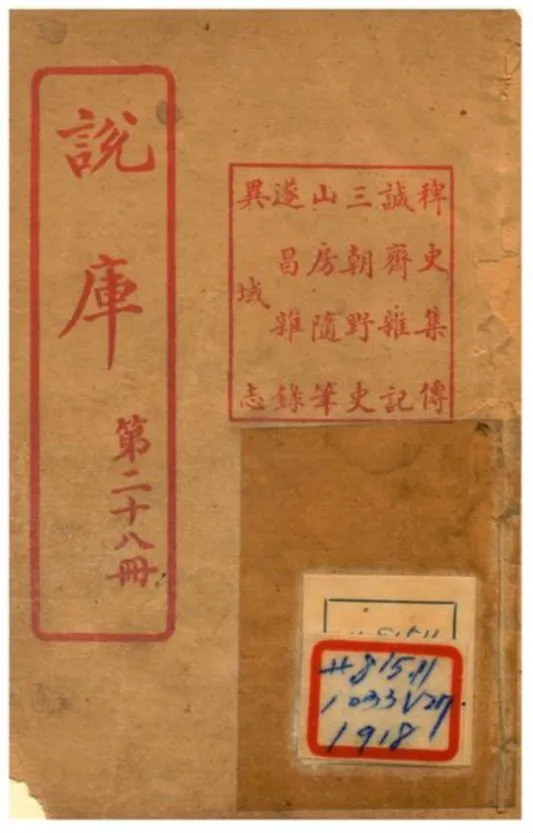 說庫
第二十八冊
稗史集傳
誠齊雜記
三朝野史
山房隨筆
遂昌雜錄
異域志
#815.11
1033V27
1918